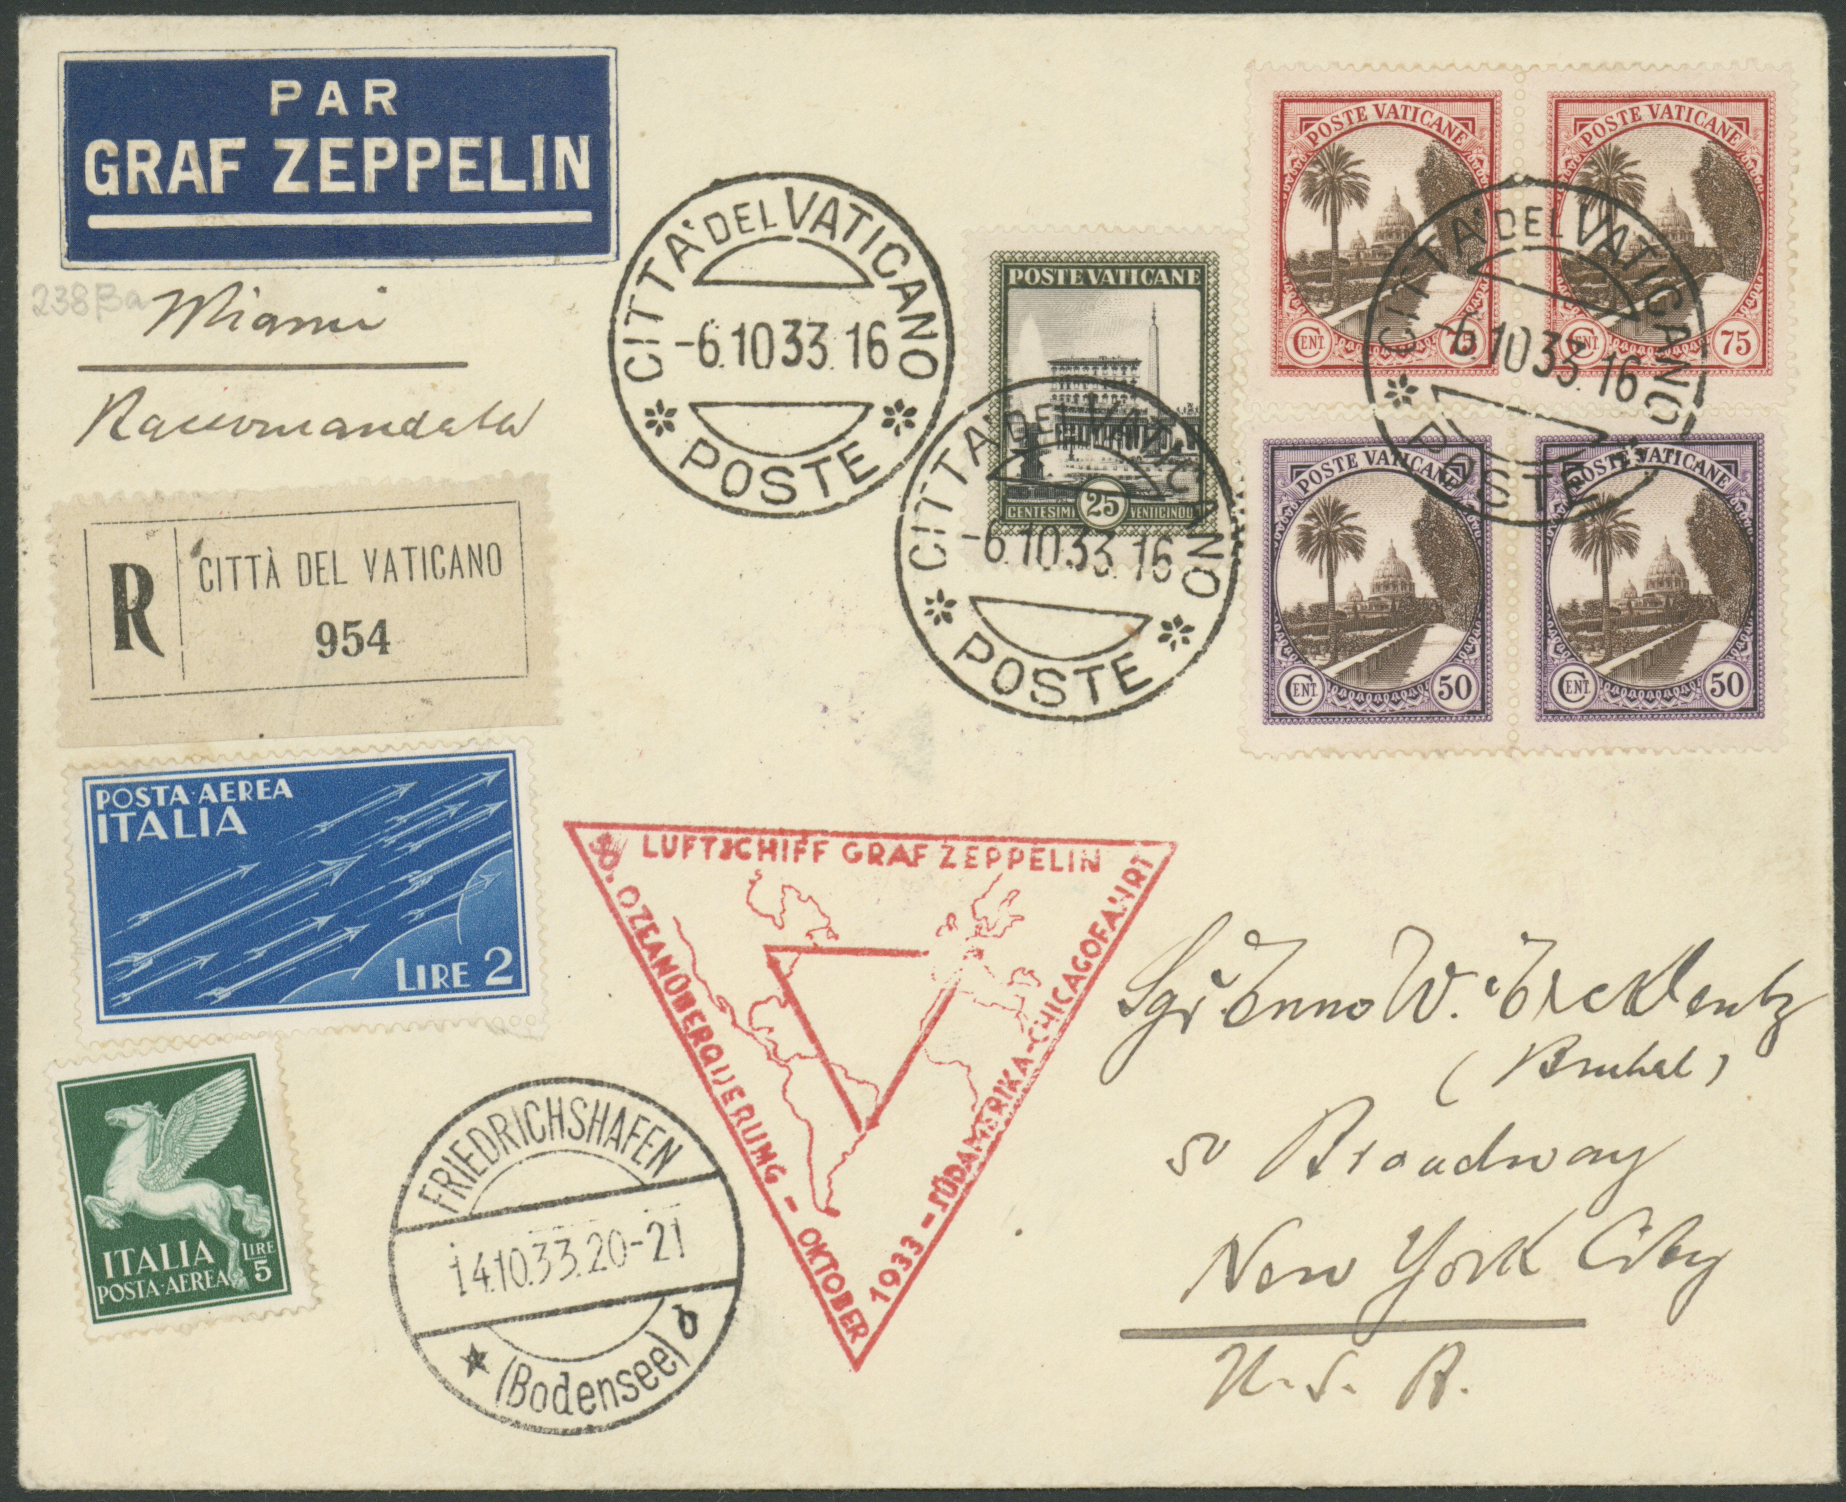 PAR
GRAF ZEPPELIN
238Ba
Miami
Raccomandata
R
CITTÀ DEL VATICANO
954
POSTA·AEREA
ITALIA
LIRE 2
ITALIA
LIRE
5
POSTA·AEREA
CITTA' DEL VATICANO
-6.10.33.16
POSTE
POSTE VATICANE
CENTESIMI 25 VENTICINQUE
CITTA' DEL VATICANO
-6.10.33.16
POSTE
POSTE VATICANE
CENT. 75
POSTE VATICANE
CENT. 75
CITTA' DEL VATICANO
-6.10.33.16
POSTE
POSTE VATICANE
CENT. 50
POSTE VATICANE
CENT. 50
LUFTSCHIFF GRAF ZEPPELIN
OZEANÜBERQUERUNG - OKTOBER
1933 - SÜDAMERIKA-CHICAGOFAHRT
FRIEDRICHSHAFEN
14.10.33.20-21
(Bodensee) b
W.
50 Broadway
New York City
U. S. A.